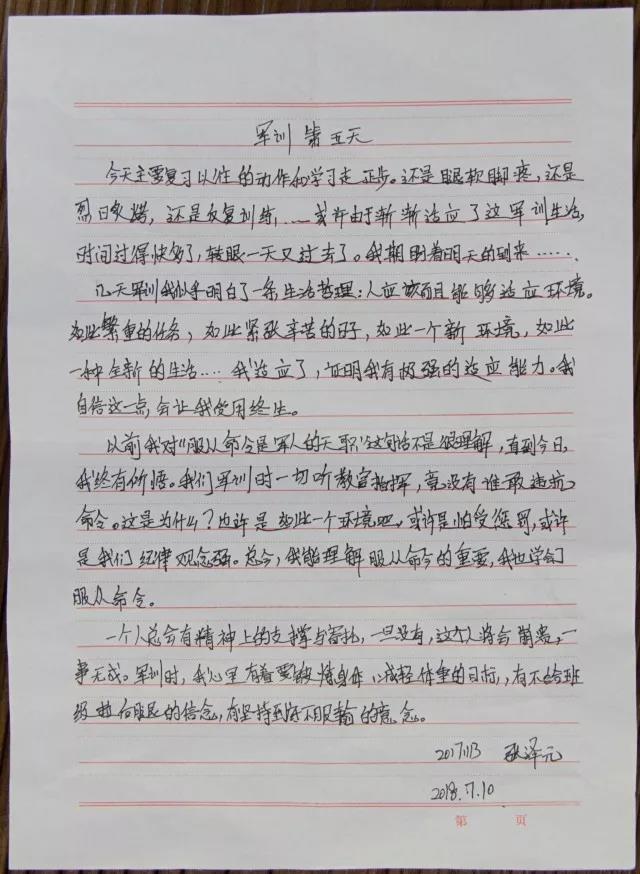 军训第五天
今天主要复习以往的动作和学习走正步。还是眼软脚疼,还是
烈日炙烤,还是反复训练,……或许由于渐渐适应了这军训生活,
时间过得快多了,转眼一天又过去了。我期盼着明天的到来……
几天军训我似乎明白了一条生活哲理:人应该而且能够适应环境。
如此繁重的任务,如此紧张辛苦的日子,如此一个新环境,如此
一种全新的生活……我适应了,证明我有极强的适应能力。我
自信这一点,会让我受用终生。
以前我对"服从命令是军人的天职"这句话不是很理解,直到今日,
我终有所悟。我们军训时一切听教官指挥,竟没有谁敢违抗
命令。这是为什么?也许是如此一个环境吧,或许是怕受惩罚,或许
是我们纪律观念强。总之,我能理解服从命令的重要,我也学会了
服从命令。
一个人总会有精神上的支撑与寄托,一旦没有,这个人将会崩溃,一
事无成。军训时,我心里有着要锻炼身体,减轻体重的目标,有不给班
级拉后腿的信念,有坚持到底不服输的意念。
2017113 张泽元
2018.7.10
第 页